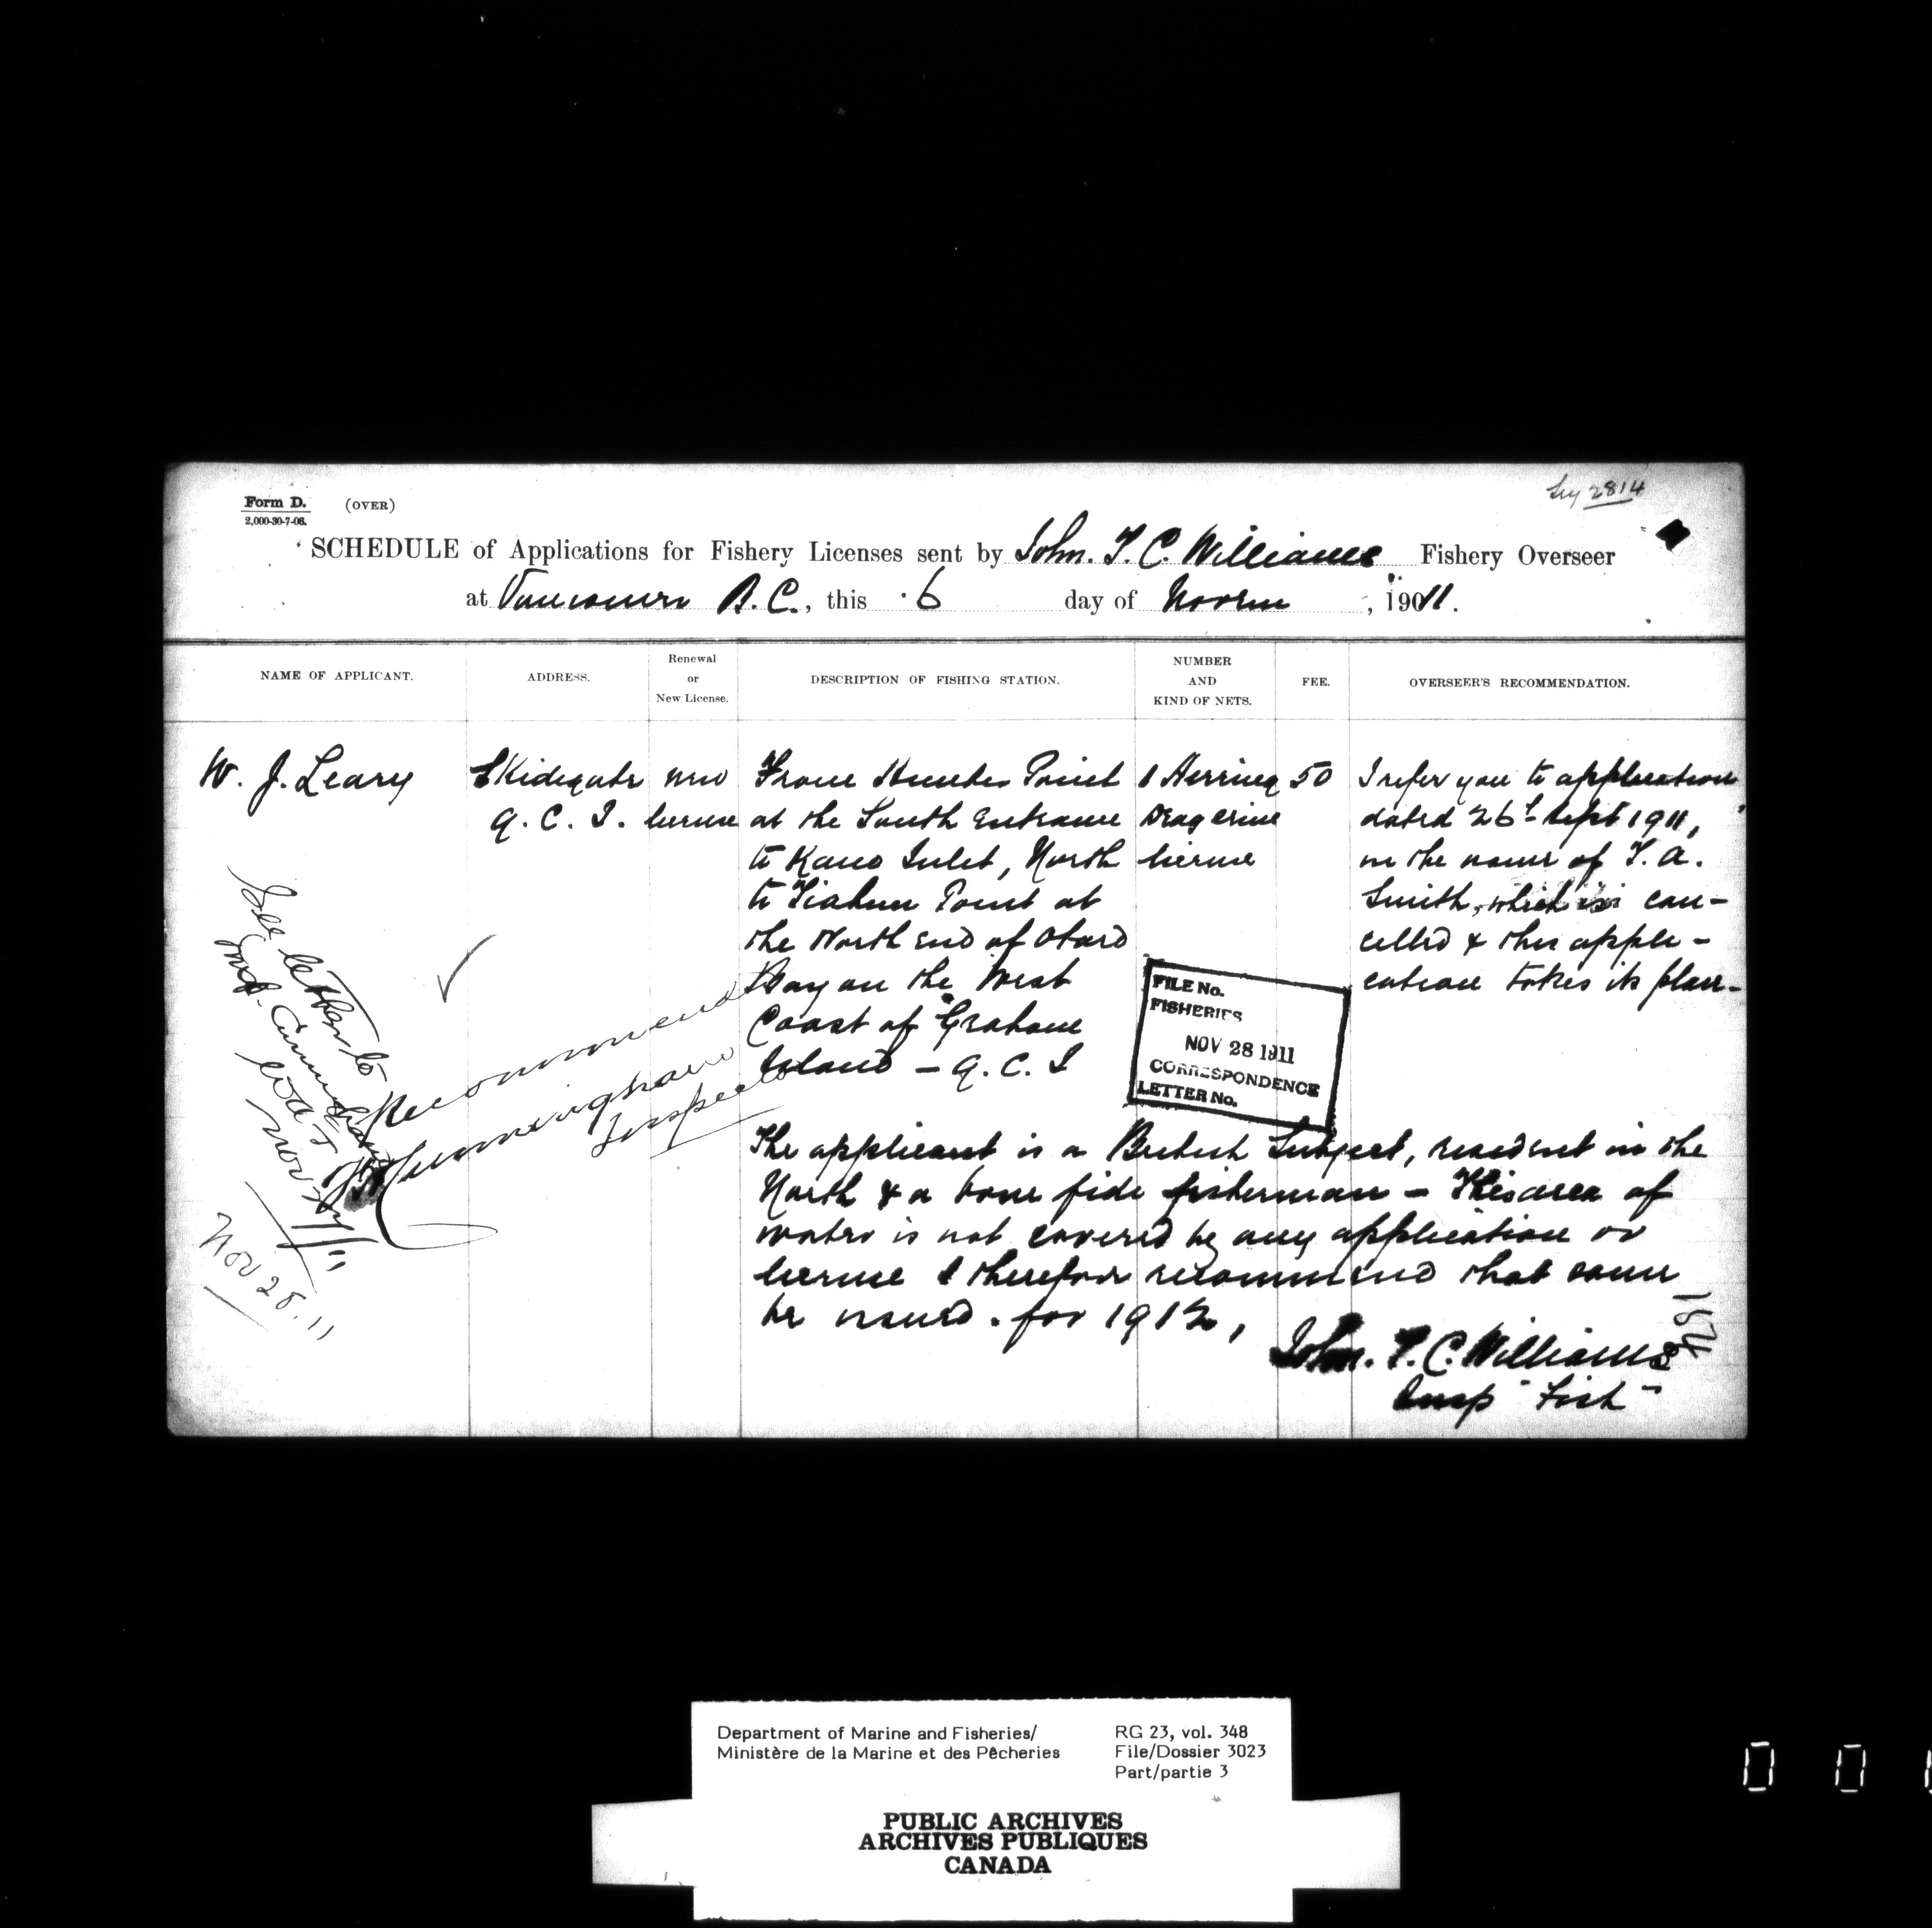 Form D. (OVER)
2,000-30-7-08.
2814
SCHEDULE of Applications for Fishery Licenses sent by John. T. C. Williams Fishery Overseer
at Vancouver B.C., this 6 day of Novem , 19011.
NAME OF APPLICANT.
ADDRESS.
Renewal
or
New License.
DESCRIPTION OF FISHING STATION.
NUMBER
AND
KIND OF NETS.
FEE.
OVERSEER'S RECOMMENDATION.
W. J. Leary
Skidegate
Q. C. I.
new
license
From Hunter Point
at the South Entrance
to Kano Inlet, North
to Tiahun Point at
the North End of Otard
Bay on the West
Coast of Graham
Island - Q. C. I
1 Herring
Drag seine
license
50
I refer you to application
dated 26t Sept 1911,
in the name of T. A.
Smith, which is can-
celled & this appli-
cation takes its place-
See letter to
Insp. Cunningham
Nov 28. 11
Recommended
Cunningham
Inspector
FILE No.
FISHERIES
NOV 28 1911
CORRESPONDENCE
LETTER No.
The applicant is a British Subject, resident in the
North & a bona fide fisherman - This area of
water is not covered by any application or
license I therefore recommend that same
be issued. for 1912,
John. T. C. Williams
Insp Fish
Department of Marine and Fisheries/
Ministère de la Marine et des Pêcheries
RG 23, vol. 348
File/Dossier 3023
Part/partie 3
PUBLIC ARCHIVES
ARCHIVES PUBLIQUES
CANADA
0 0